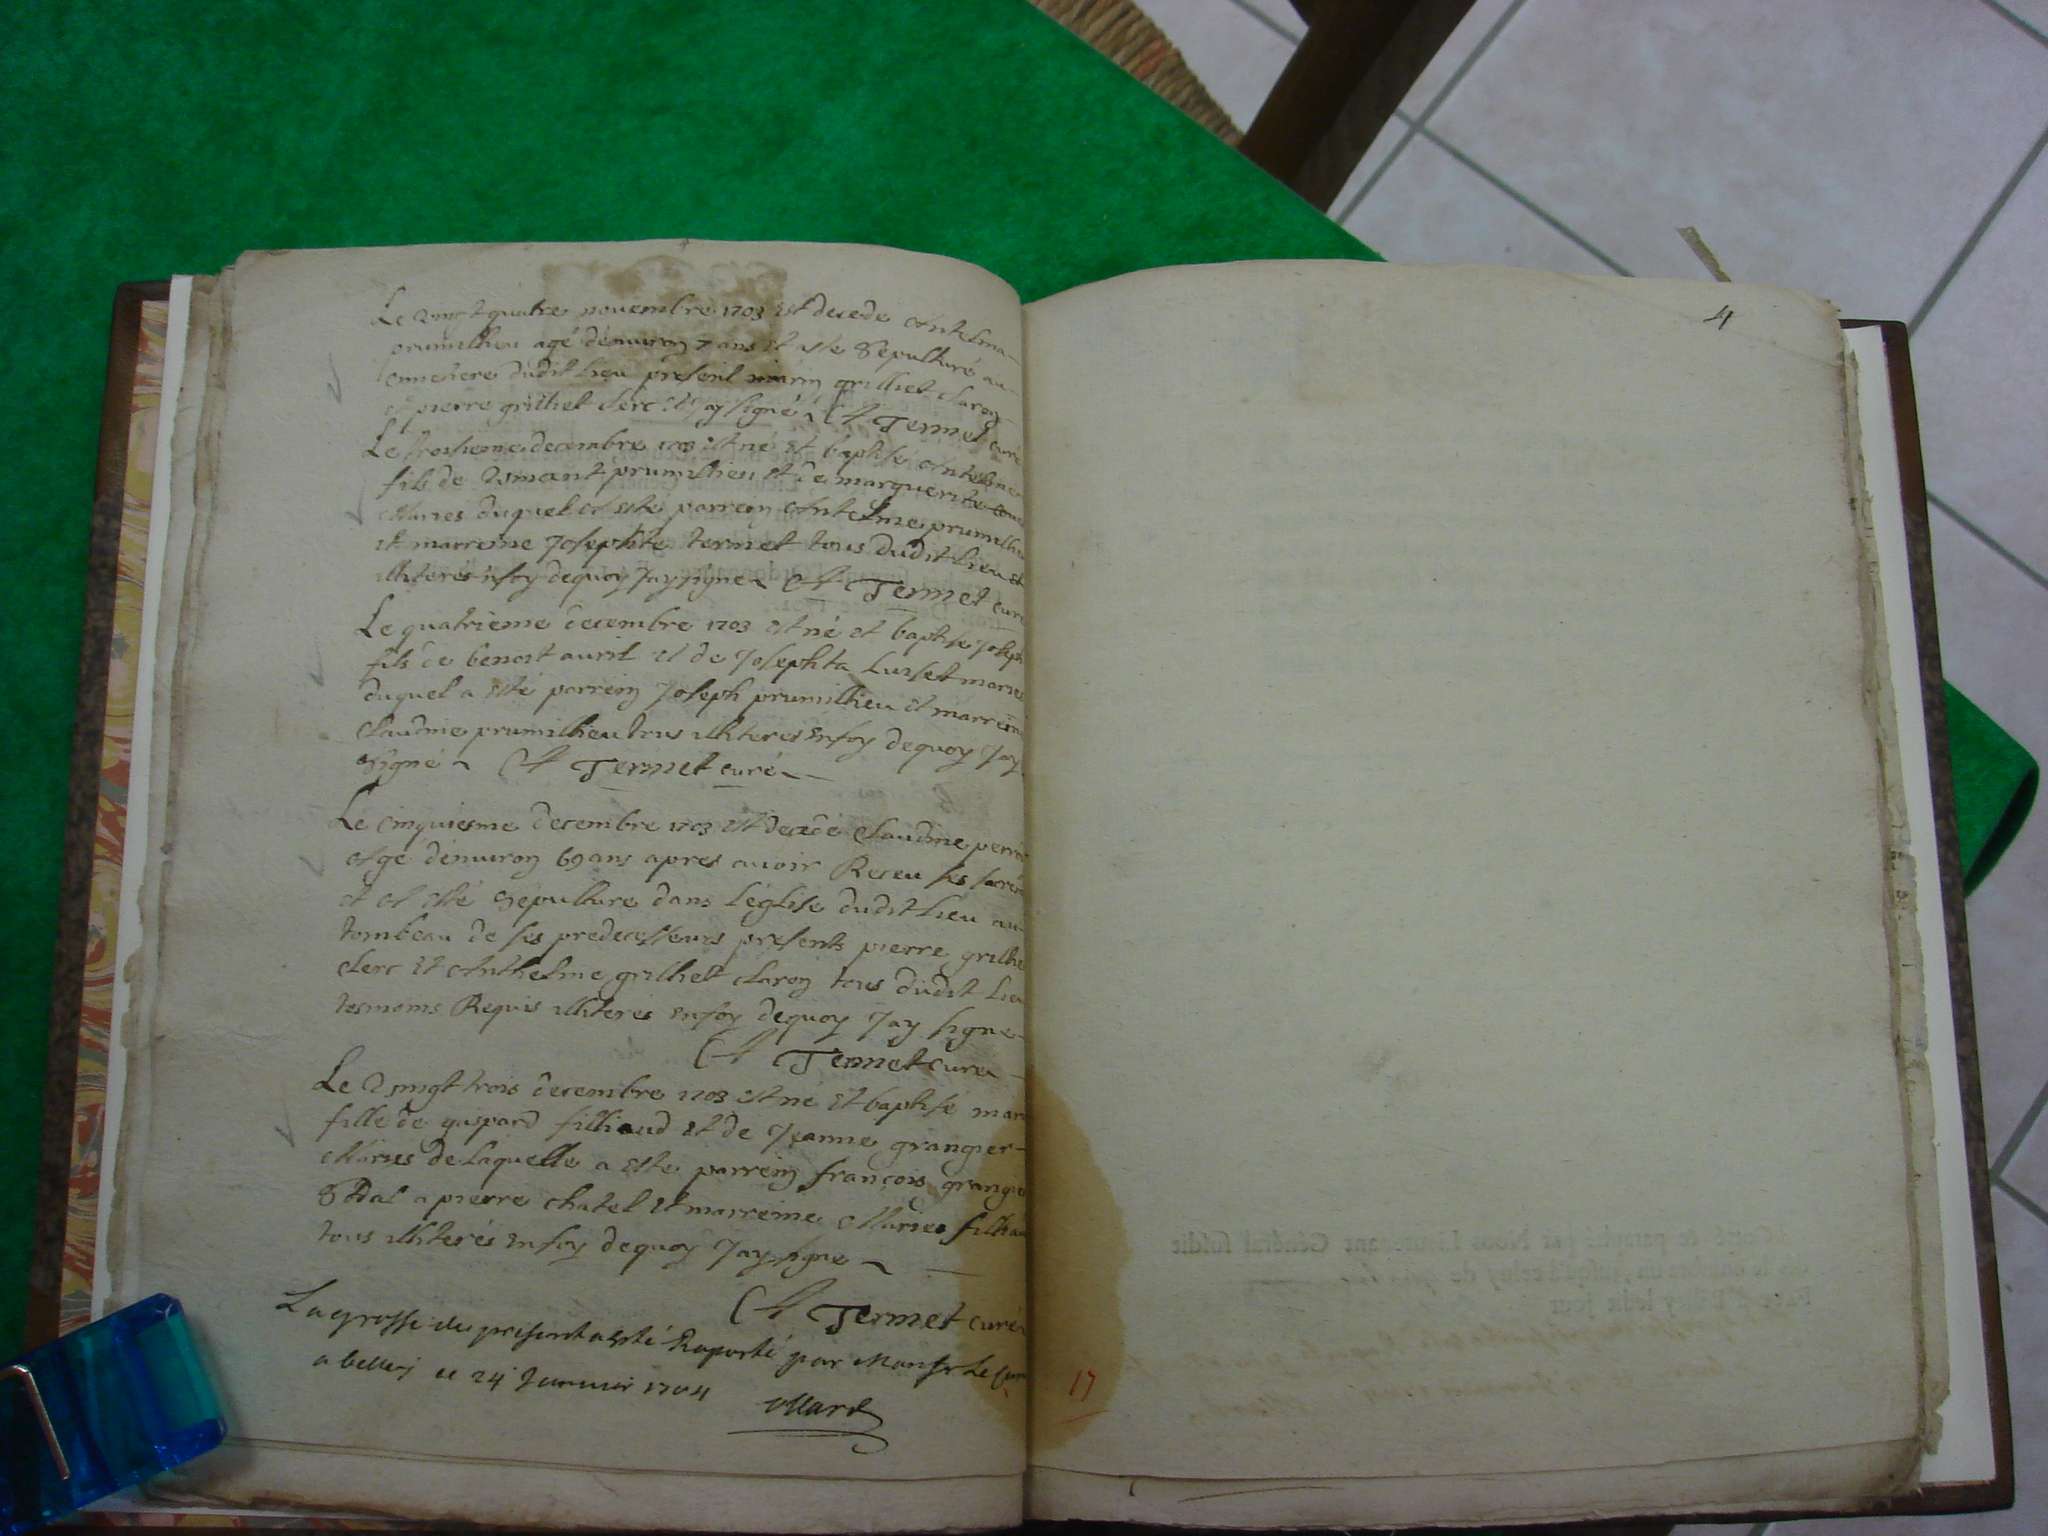 Le vingt quatre novembre 1703 est decede Antelma
prumillieu agé d'enuiron 7 ans et a este Sepulturé au
cimetiere dudit Lieu present marin grilliet claron
et pierre grilliet clerc et Jay signé A Termet curé
Le troisieme decembre 1703 est né et baptisé Antelme
fils de vimant prumillieu et de marguerite
Maries duquel a este parrein Antelme prumillieu
et marreine Josephte termet tous dudit Lieu et
illiteres enfoy dequoy Jay signe A Termet curé
Le quatrieme decembre 1703 est né et baptisé Joseph
fils de benoit auril et de Josephta Lurset maries
duquel a esté parrein Joseph prumillieu et marreine
Claudine prumillieu tous illiteres enfoy dequoy Jay
signé A Termet curé
Le cinquiesme decembre 1703 est decedé Claudine perrin
Age d'enuiron 69 ans apres auoir Receu ses sacrem
et a esté sepulture dans L'église dudit Lieu au
tombeau de ses predecesseurs presents pierre grillie
clerc et Anthelme grilliet claron tous dudit Lieu
tesmoins Requis illiteres enfoy dequoy Jay signe
A Termet cure
Le vingt trois decembre 1703 est né et baptisé mari
fille de gaspard filliaud et de Jeanne grangier
Maries de laquelle a este parrein françois grangier
Sodal a pierre chatel et marreine Marie filliau
tous illiterés enfoy dequoy Jay signe
A Termet curé
La grosse du present a esté Raporté par Monsr Le Curé
a belley ce 24 Januier 1704
Mard
4
17